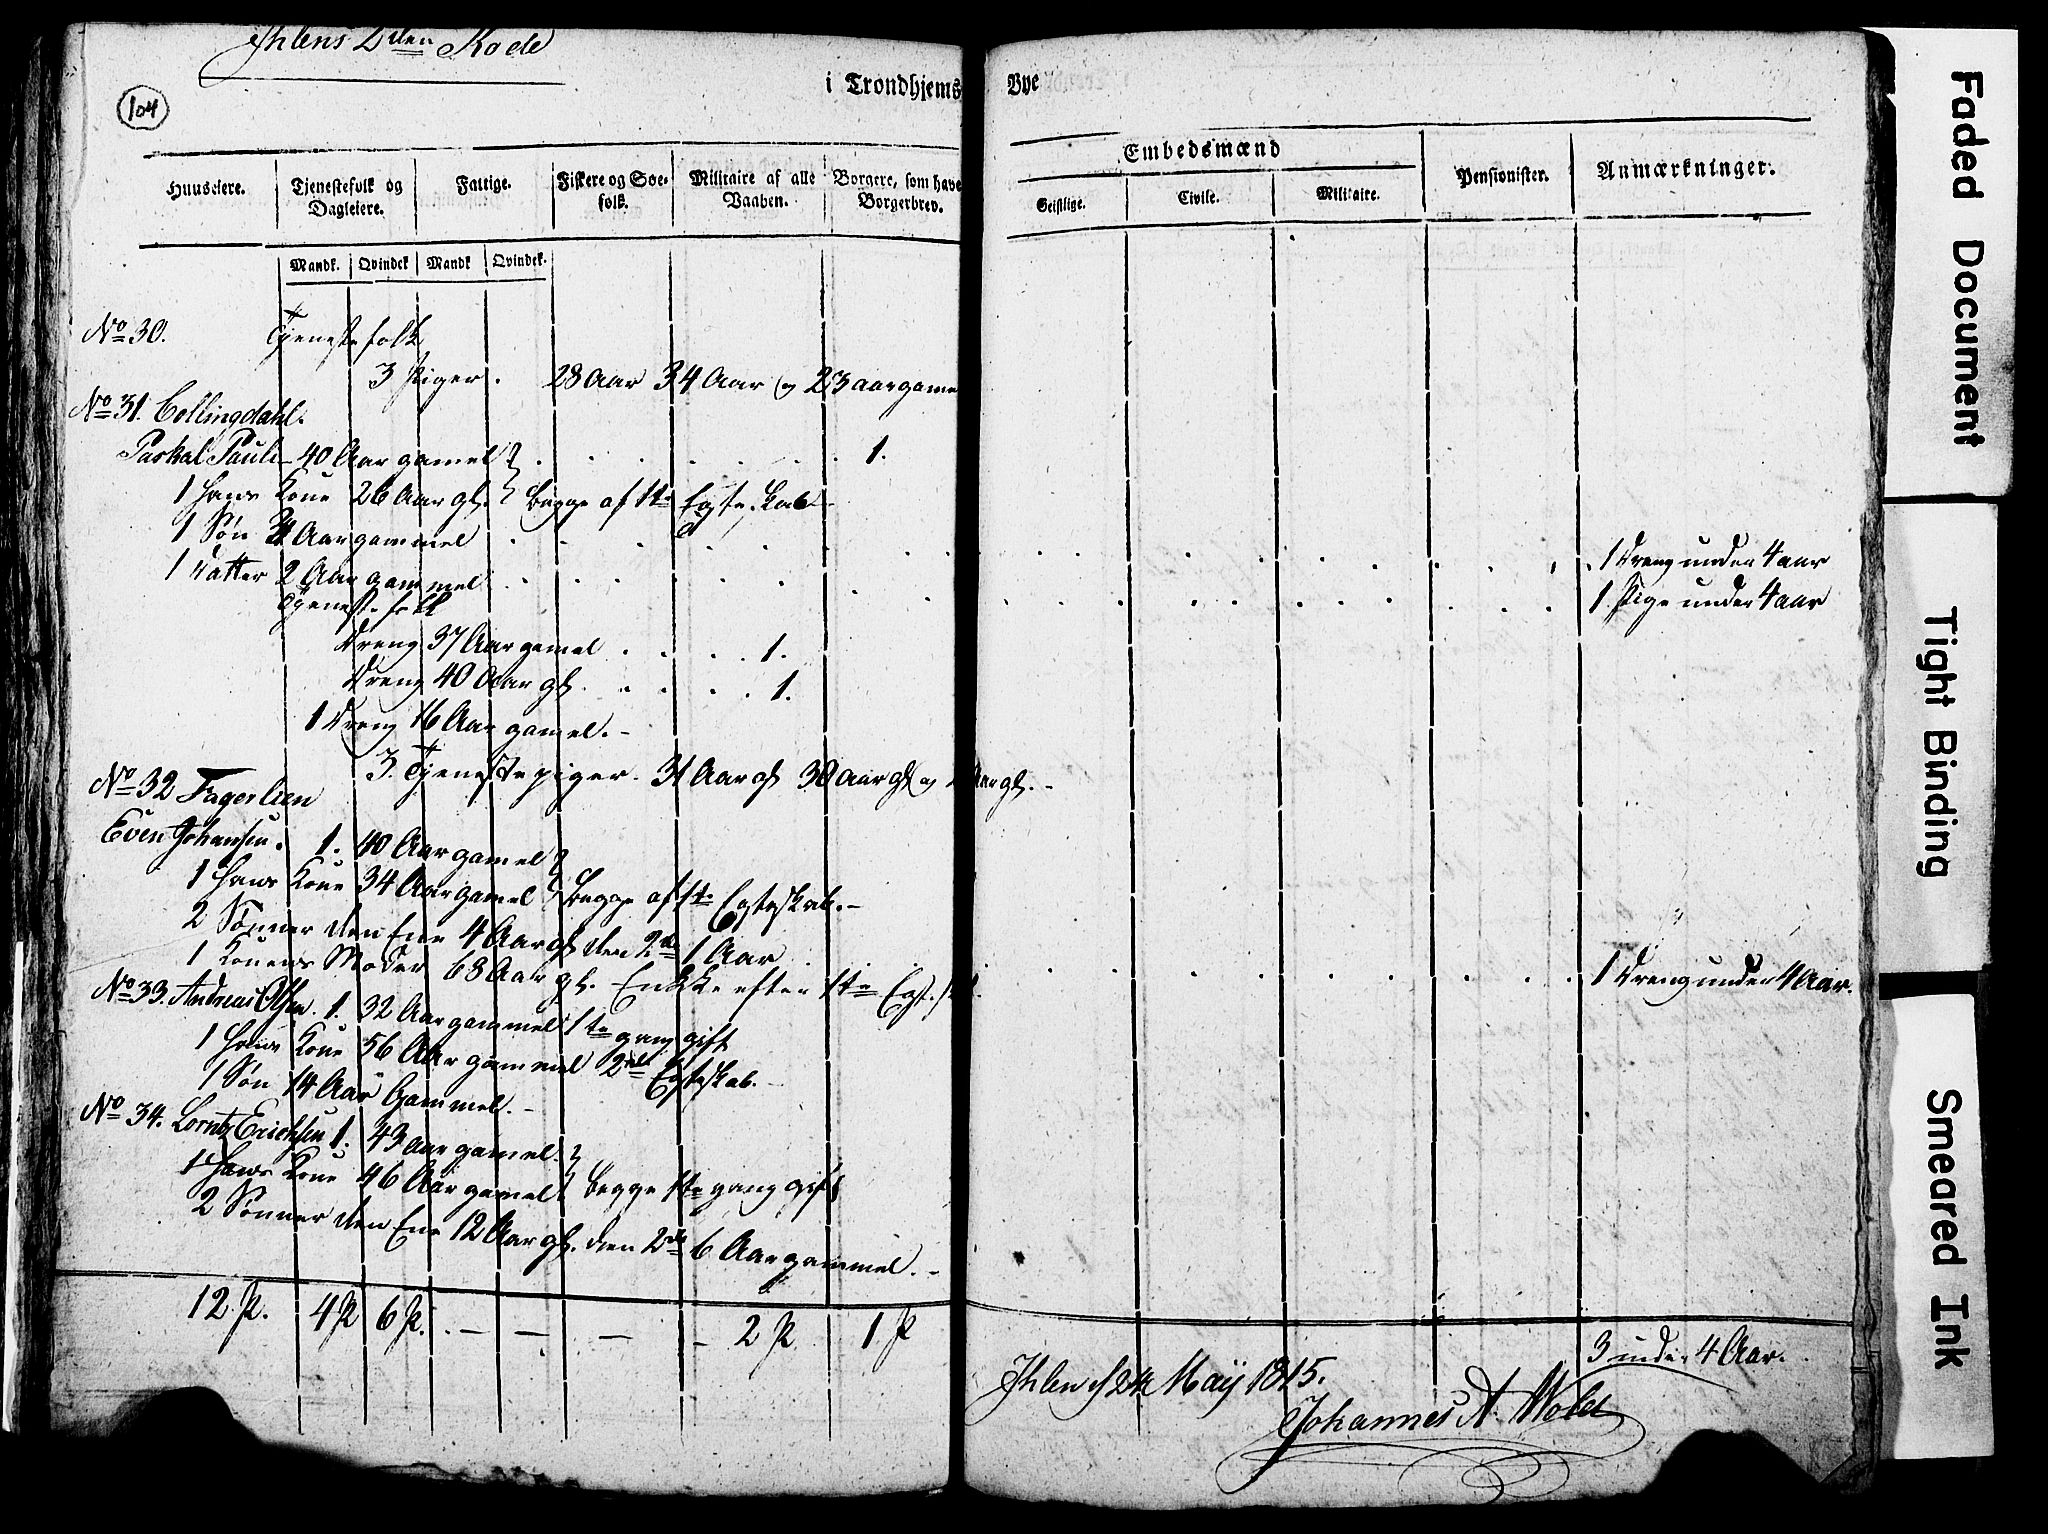 Ihlens 2den Rode
104
i Trondhjems Bye
Huuseiere. Tjenestefolk og Dagleiere. Fattige. Fiskere og Søefolk. Militaire af alle Vaaben. Borgere, som have Borgerbrev. Embedsmænd Pensionister. Anmærkninger.
Geistlige. Civile. Militaire.
Mandk. Qvindek Mandk Qvindek.
No 30. Tjenestefolk
3 Piger. 28 Aar 34 Aar og 23 aar game
No 31. Collingdahl.
Paskal Pauli 40 Aar gamel 1.
1 hans Kone 26 Aar gl. begge af 1te Egteskab
1 Søn Aar gammel 1 Dreng under 4 aar
1 Datter 2 Aar gammel 1 Pige under 4 aar
Tjenestefolk
Dreng 37 Aar gamel 1.
Dreng 40 Aar gl. 1.
1 Dreng 16 Aar gamel.
3. Tjenestepiger. 31 Aar gl 30 Aar gl og Aar gl.
No 32 Fagerlien
Even Johansen. 1. 40 Aar gamel
1 hans Kone 34 Aar gamel begge af 1te Egteskab.
2 Sønner den Ene 4 Aar gl den 2de 1 Aar 1 Dreng under 4 Aar.
1 Konens Moder 68 Aar gl. Enkke efter 1te Egt.
No 33. Andreas Olsen. 1. 32 Aar gammel 1te gang gift
1 hans Kone 56 Aar gammel 2det Egteskab.
1 Søn 14 Aar Gammel.
No 34. Lorntz Erichsen 1. 43 aar gamel.
1 hans Kone 46 Aar gamel begge 1te gang gift
2 Sønner den Ene 12 Aar gl. den 2de 6 Aar gammel.
12 P. 4 P 6 P. – – – – 2 P 1 P 3 under 4 Aar.
Ihlen d 24 Maÿ 1815.
Johannes A. Wold
Faded Document
Tight Binding
Smeared Ink